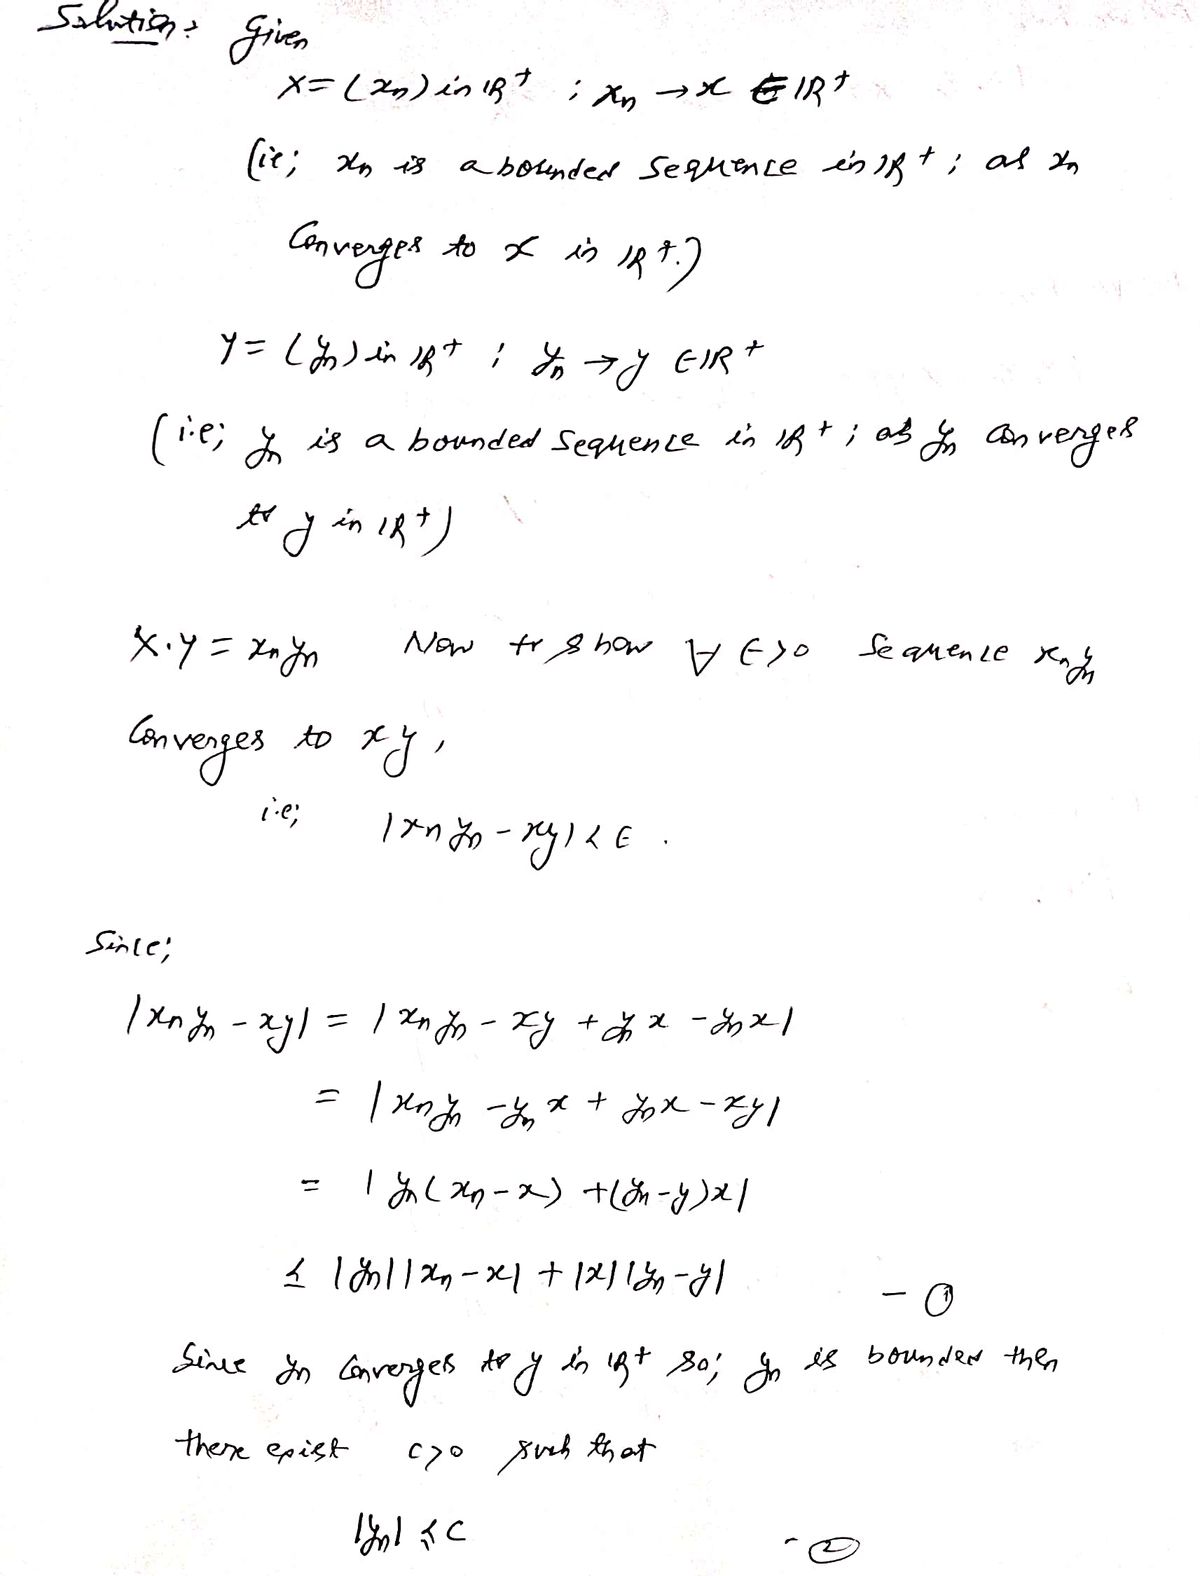 Solution: Given
X = (xn) in IR+ ; xn → x ∈ IR+
(ie; xn is a bounded sequence in IR+ ; as xn
Converges to x in IR+.)
Y = (yn) in IR+ ; yn → y ∈ IR+
(i.e; yn is a bounded sequence in IR+ ; as yn converges
to y in IR+)
X.Y = xnyn Now to show ∀ ∈>0 Sequence xnyn
Converges to xy,
i.e; |xnyn - xy| < ∈ .
Since;
|xnyn - xy| = |xnyn - xy + ynx - ynx|
= |xnyn - ynx + ynx - xy|
= |yn(xn - x) + (yn - y)x|
≤ |yn||xn - x| + |x||yn - y| - ①
Since yn Converges to y in IR+ so; yn is bounded then
there exist c>0 such that
|yn| ≤ C - ②